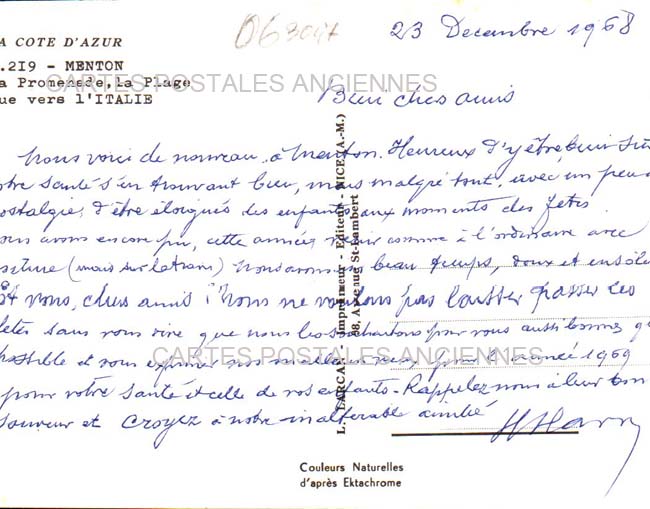 A COTE D'AZUR
.219 - MENTON
a Promenade, la Plage
ue vers l'ITALIE
063047
23 Decembre 1968
CARTES POSTALES ANCIENNES
Bien chers amis
Nous voici de nouveau, à Menton. Heureux d'y être, bien sûr
otre santé s'en trouvant bien, mais malgré tout, avec un peu
ostalgie, d'être éloignés des enfants aux moments des fêtes
ous avons encore pu, cette année, venir comme à l'ordinaire avec
voiture (mais sur le train) Nous avons beau temps, doux et ensole
Et vous, chers amis ! Nous ne voulons pas laisser passer ces
fêtes sans vous dire que nous les souhaitons pour vous aussi bonnes que
possible et vous exprimer nos meilleurs vœux, pour l'année 1969
pour votre santé et celle de vos enfants. Rappelez nous à leur bon
souvenir et croyez à notre inaltérable amitié
CARTES POSTALES ANCIENNES
L. LARCA - Imprimeur - Editeur - NICE (A.-M.)
88, Avenue St-Lambert
Couleurs Naturelles
d'après Ektachrome